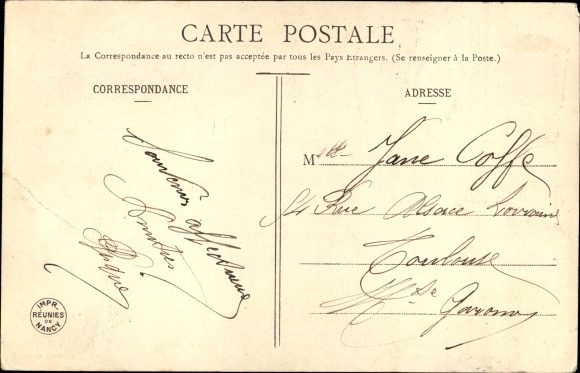 CARTE POSTALE
La Correspondance au recto n'est pas acceptée par tous les Pays Etrangers. (Se renseigner à la Poste.)
CORRESPONDANCE
Souvenir affectueux
ADRESSE
Mlle Jane Coffe
Rue Alsace Lorraine
Toulouse
Hte Garonne
IMPR-
RÉUNIES
DE
NANCY